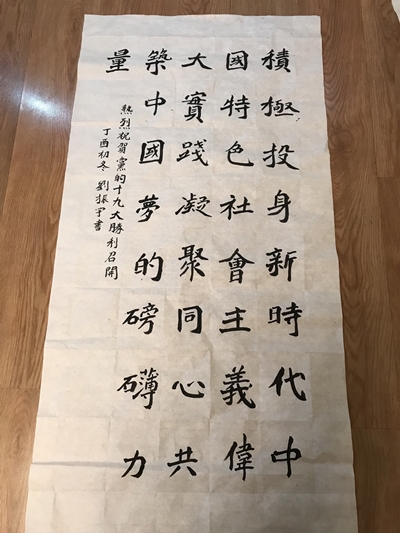 積極投身新時代中
國特色社會主義偉
大實踐凝聚同心共
築中國夢的磅礴力
量
熱烈祝賀黨的十九大勝利召開
丁酉初冬 劉振宇書